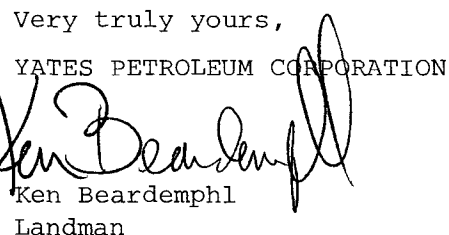 Very truly yours,
YATES PETROLEUM CORPORATION
Ken Beardemphl
Ken Beardemphl
Landman